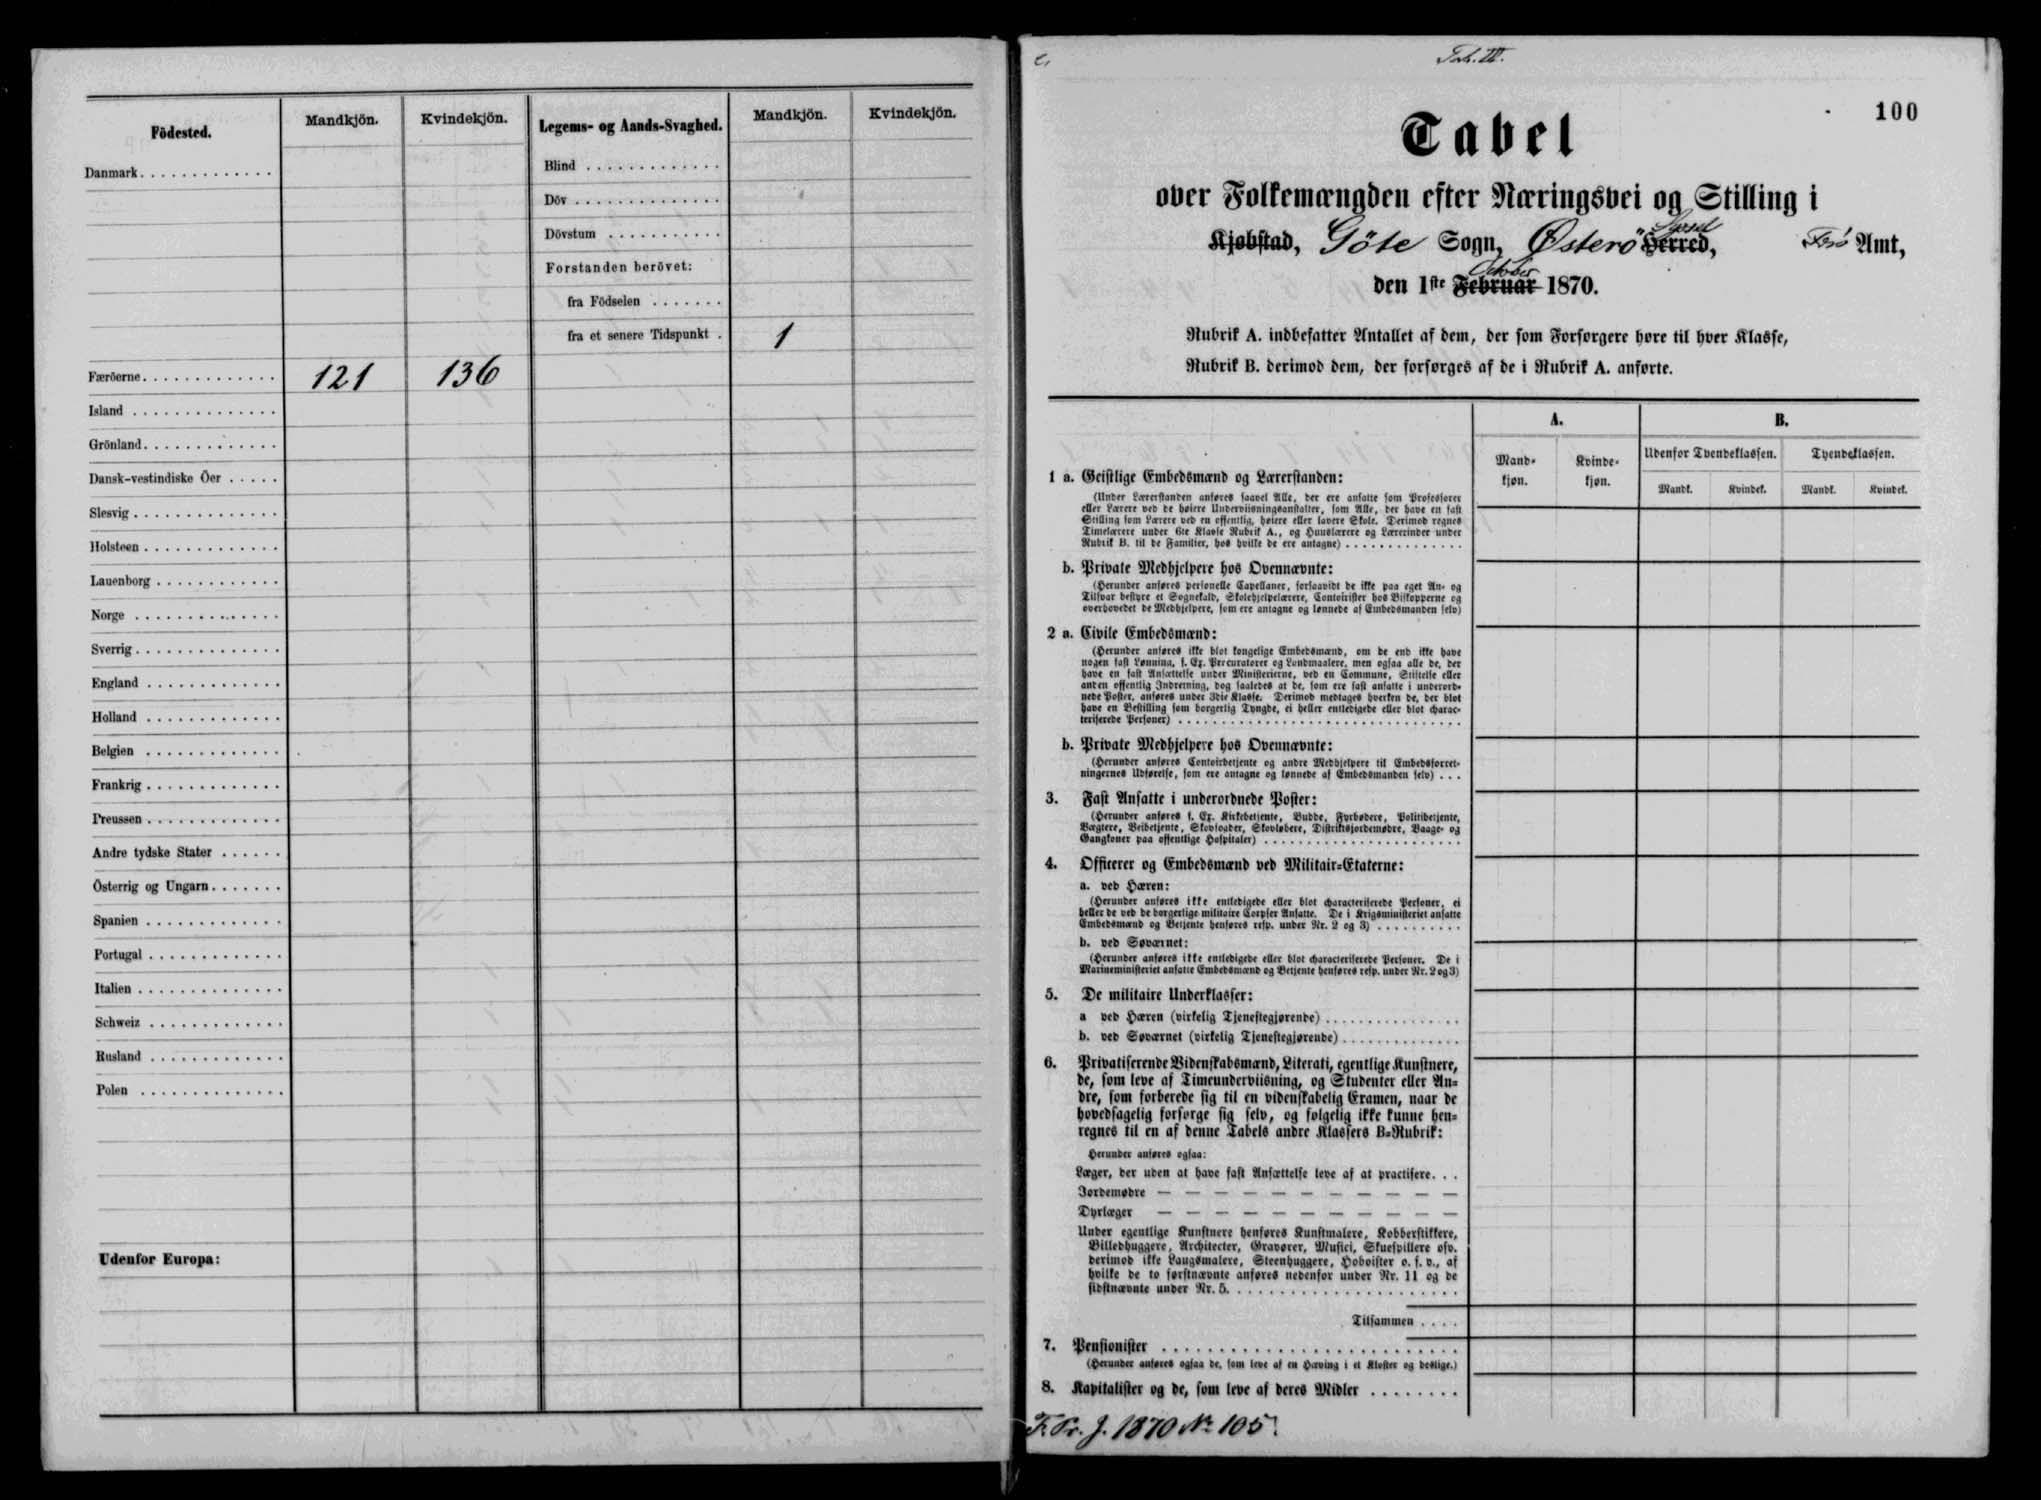 Födested.
Mandkjön.
Kvindekjön.
Legems- og Aands-Svaghed.
Mandkjön.
Kvindekjön.
Danmark
Færöerne 121 136
Island
Grönland
Dansk-vestindiske Öer
Slesvig
Holsteen
Lauenborg
Norge
Sverrig
England
Holland
Belgien
Frankrig
Preussen
Andre tydske Stater
Österrig og Ungarn
Spanien
Portugal
Italien
Schweiz
Rusland
Polen
Udenfor Europa:
Blind
Döv
Dövstum
Forstanden berövet:
fra Födselen
fra et senere Tidspunkt . 1
Tab. III.
100
Tabel
over Folkemængden efter Næringsvei og Stilling i
Kjøbstad, Göte Sogn, Østerö Herred, Syssel Færö Amt,
den 1ste Februar October 1870.
Rubrik A. indbefatter Antallet af dem, der som Forsørgere høre til hver Klasse,
Rubrik B. derimod dem, der forsørges af de i Rubrik A. anførte.
A.
B.
Mand-
kjøn.
Kvinde-
kjøn.
Udenfor Tyendeklassen.
Tyendeklassen.
Mandk.
Kvindek.
Mandk.
Kvindek.
1 a. Geistlige Embedsmænd og Lærerstanden:
(Under Lærerstanden anføres saavel Alle, der ere ansatte som Professorer
eller Lærere ved de høiere Underviisningsanstalter, som Alle, der have en fast
Stilling som Lærere ved en offentlig, høiere eller lavere Skole. Derimod regnes
Timelærere under 6te Klasse Rubrik A., og Huuslærere og Lærerinder under
Rubrik B. til de Familier, hos hvilke de ere antagne)
b. Private Medhjelpere hos Ovennævnte:
(Herunder anføres personelle Capellaner, forsaavidt de ikke paa eget An- og
Tilsvar bestyre et Sognekald, Skolehjelpelærere, Contoirister hos Biskopperne og
overhovedet de Medhjelpere, som ere antagne og lønnede af Embedsmanden selv)
2 a. Civile Embedsmænd:
(Herunder anføres ikke blot kongelige Embedsmænd, om de end ikke have
nogen fast Lønning, f. Ex. Procuratorer og Landmaalere, men ogsaa alle de, der
have en fast Ansættelse under Ministerierne, ved en Commune, Stiftelse eller
anden offentlig Indretning, dog saaledes at de, som ere fast ansatte i underord-
nede Poster, anføres under 3die Klasse. Derimod medtages hverken de, der blot
have en Bestilling som borgerlig Tyngde, ei heller entledigede eller blot charac-
teriserede Personer)
b. Private Medhjelpere hos Ovennævnte:
(Herunder anføres Contoirbetjente og andre Medhjelpere til Embedsforret-
ningernes Udførelse, som ere antagne og lønnede af Embedsmanden selv)
3. Fast Ansatte i underordnede Poster:
(Herunder anføres f. Ex. Kirkebetjente, Budde, Fyrbødere, Politibetjente,
Vægtere, Veibetjente, Skovfogder, Skovløbere, Distriktsjordemødre, Vaage- og
Gangkoner paa offentlige Hospitaler)
4. Officerer og Embedsmænd ved Militair-Etaterne:
a. ved Hæren:
(Herunder anføres ikke entledigede eller blot characteriserede Personer, ei
heller de ved de borgerlige militaire Corpser Ansatte. De i Krigsministeriet ansatte
Embedsmænd og Betjente henføres resp. under Nr. 2 og 3)
b. ved Søværnet:
(Herunder anføres ikke entledigede eller blot characteriserede Personer. De i
Marineministeriet ansatte Embedsmænd og Betjente henføres resp. under Nr. 2 og 3)
5. De militaire Underklasser:
a ved Hæren (virkelig Tjenestegjørende)
b. ved Søværnet (virkelig Tjenestegjørende)
6. Privatiserende Videnskabsmænd, Literati, egentlige Kunstnere,
de, som leve af Timeunderviisning, og Studenter eller An-
dre, som forberede sig til en videnskabelig Examen, naar de
hovedsagelig forsørge sig selv, og følgelig ikke kunne hen-
regnes til en af denne Tabels andre Klassers B-Rubrik:
Herunder anføres ogsaa:
Læger, der uden at have fast Ansættelse leve af at practisere
Jordemødre — — — — — — — — — — —
Dyrlæger — — — — — — — — — — —
Under egentlige Kunstnere henføres Kunstmalere, Kobberstikkere,
Billedhuggere, Architecter, Gravører, Musici, Skuespillere osv.
derimod ikke Laugsmalere, Steenhuggere, Hoboister o. s. v., af
hvilke de to førstnævnte anføres nedenfor under Nr. 11 og de
sidstnævnte under Nr. 5.
Tilsammen
7. Pensionister
(Herunder anføres ogsaa de, som leve af en Hæving i et Kloster og deslige.)
8. Kapitalister og de, som leve af deres Midler
F. Pr. J. 1870 Nr 105.